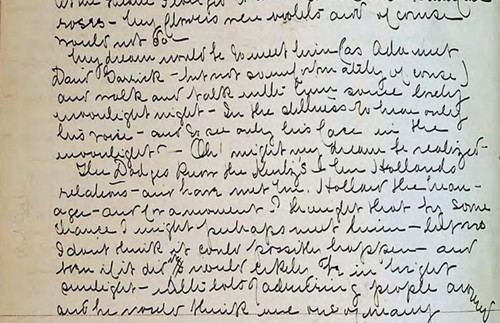 roses - my flowers were violets and of course
would not do -
My dream would be to meet him (as Ada met
David Garrick - but not so unformality of course)
and walk and talk with him some lovely
moonlight night - In the stillness to hear only
his voice - and to see only his face in the
moonlight - Oh! might my dream be realized -
The Dodges know the Kurtz's & Mr. Holland's
relations - and have met Mr. Holland the man-
ager - and for a moment I thought that by some
chance I might perhaps meet him - but no
I don't think it could possibly happen - and
then if it did it would likely be in bright
sunlight - with lots of admiring people around
and he would think me one of many